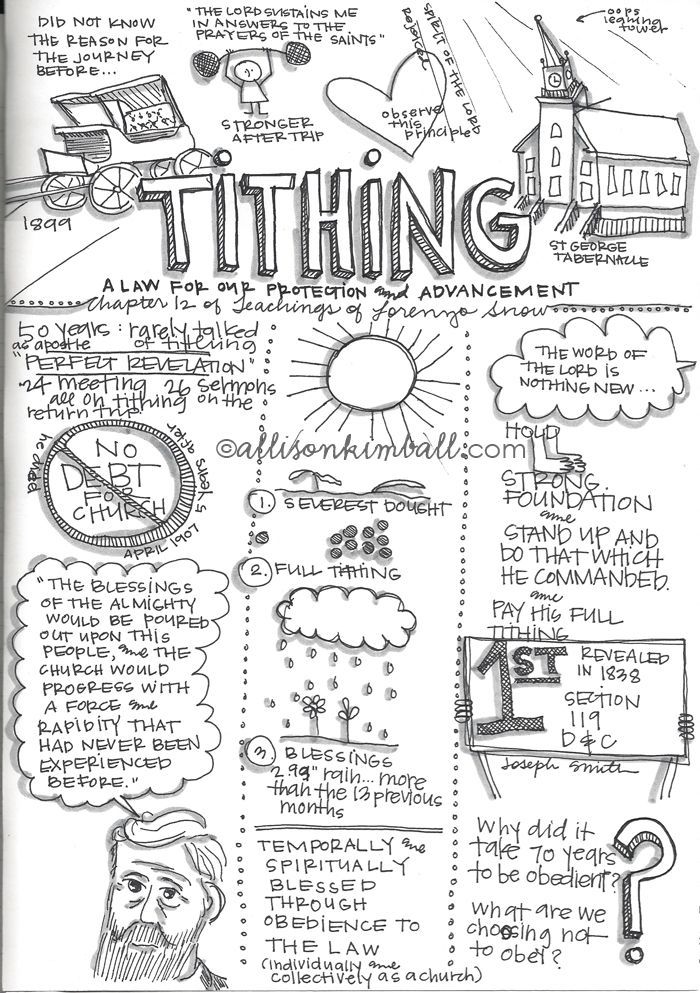 DID NOT KNOW
THE REASON FOR
THE JOURNEY
BEFORE...
1899
"THE LORD SUSTAINS ME
IN ANSWERS TO THE
PRAYERS OF THE SAINTS"
STRONGER
AFTER TRIP
observe
this
principle
HEART OF THE LORD
oops
leaning
tower
ST GEORGE
TABERNACLE
TiTHiNG
A LAW FOR OUR PROTECTION and ADVANCEMENT
Chapter 12 of Teachings of Lorenzo Snow
50 years: rarely talked
as apostle of tithing
"PERFECT REVELATION"
24 meeting 26 sermons
all on tithing on the
return trip
NO
DEBT
FOR
CHURCH
years after
he died
APRIL 1907
"THE BLESSINGS
OF THE ALMIGHTY
WOULD BE POURED
OUT UPON THIS
PEOPLE, and THE
CHURCH WOULD
PROGRESS WITH
A FORCE and
RAPIDITY THAT
HAD NEVER BEEN
EXPERIENCED
BEFORE."
©allisonkimball.com
1. SEVEREST DOUGHT
2. FULL TITHING
3. BLESSINGS
2.93" rain... more
than the 13 previous
months
TEMPORALLY and
SPIRITUALLY
BLESSED
THROUGH
OBEDIENCE TO
THE LAW
(individually and
collectively as a church)
THE WORD OF
THE LORD IS
NOTHING NEW...
HOLD
STRONG
FOUNDATION
and
STAND UP AND
DO THAT WHICH
HE COMMANDED.
and
PAY HIS FULL
TITHING
1ST
REVEALED
IN 1838
SECTION
119
D&C
Joseph Smith
Why did it
take 70 years
to be obedient?
what are we
choosing not
to obey?
?